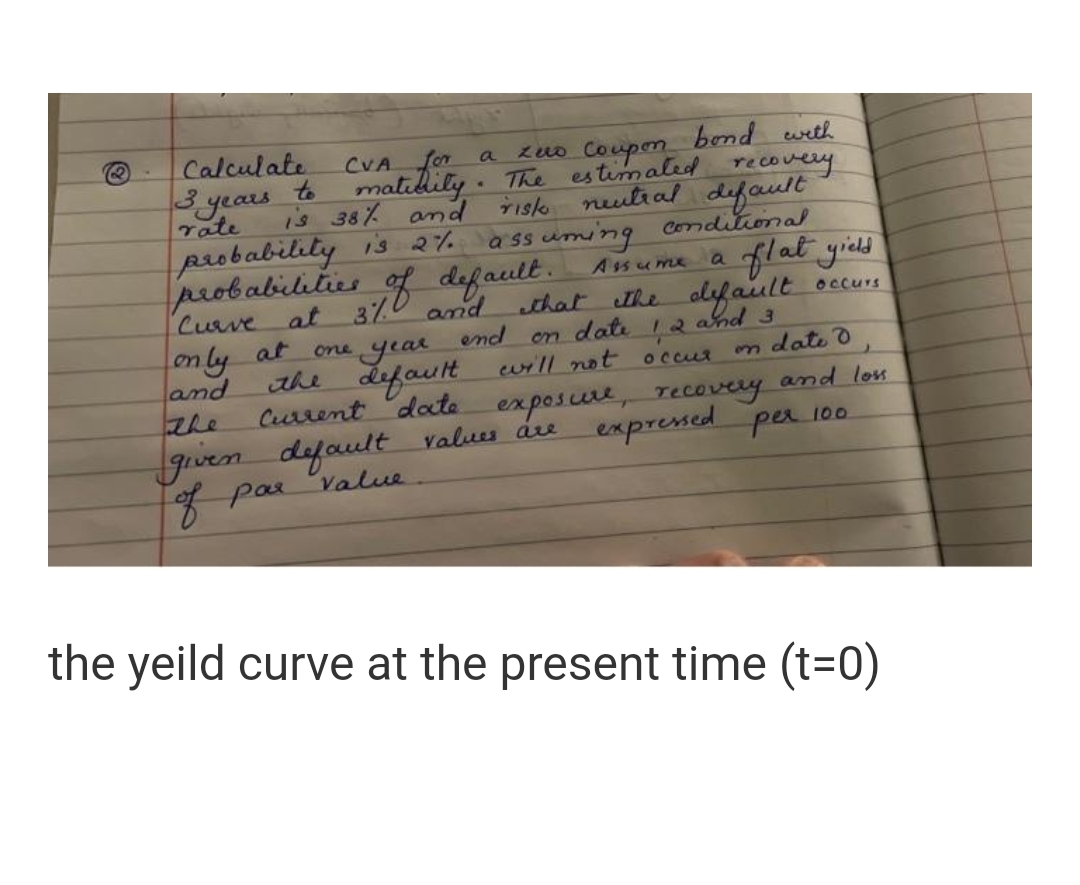 ② . Calculate CVA for a zero Coupon bond with
3 years to matidily. The estimated recovery
rate is 38% and risk neutral default
probability is 2% assuming conditional
probabilities of default. Assume a flat yield
Curve at 3% and that the default occurs
only at one year end on date 1 2 and 3
and the default will not occur on date 0,
The Current date exposure, recovery and loss
given default values are expressed per 100
of par value.
the yeild curve at the present time (t=0)